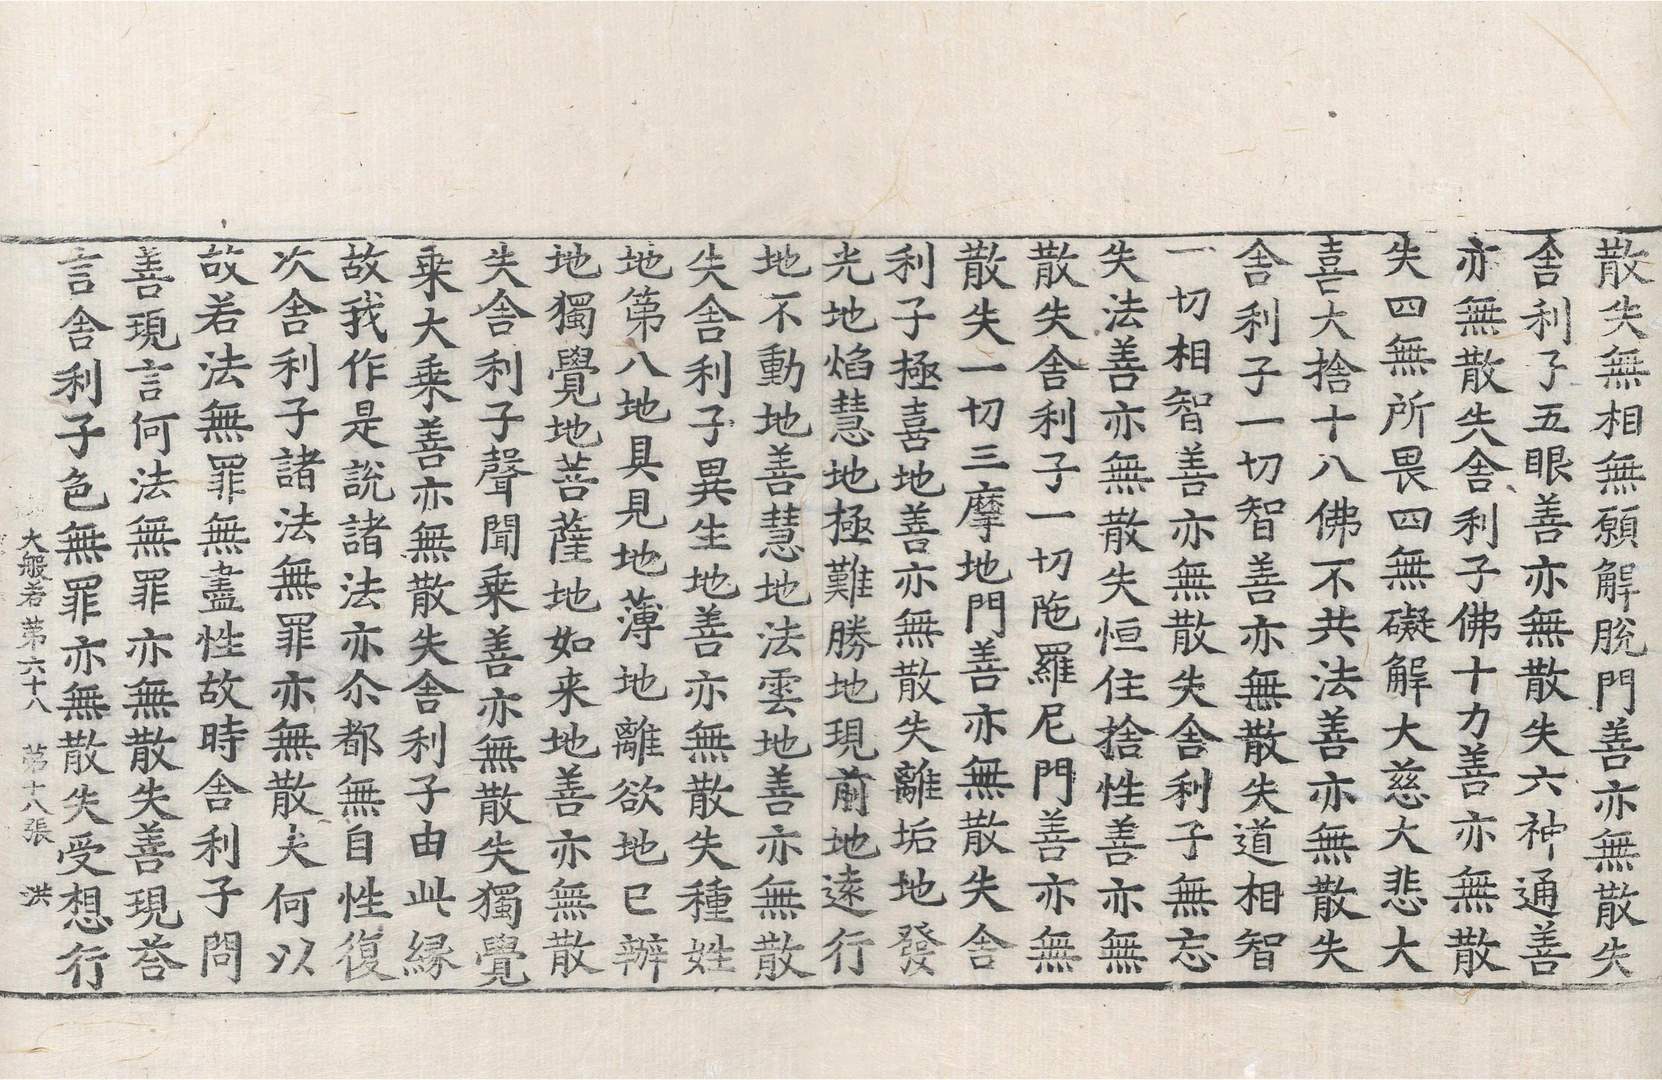 散失無相無願解脫門善亦無散失
舍利子五眼善亦無散失六神通善
亦無散失舍利子佛十力善亦無散
失四無所畏四無礙解大慈大悲大
喜大捨十八佛不共法善亦無散失
舍利子一切智善亦無散失道相智
一切相智善亦無散失舍利子無忘
失法善亦無散失恒住捨性善亦無
散失舍利子一切陁羅尼門善亦無
散失一切三摩地門善亦無散失舍
利子極喜地善亦無散失離垢地發
光地焰慧地極難勝地現前地遠行
地不動地善慧地法雲地善亦無散
失舍利子異生地善亦無散失種姓
地第八地具見地薄地離欲地已辦
地獨覺地菩薩地如来地善亦無散
失舍利子聲聞乘善亦無散失獨覺
乘大乘善亦無散失舍利子由此緣
故我作是說諸法亦尒都無自性復
次舍利子諸法無罪亦無散失何以
故若法無罪無盡性故時舍利子問
善現言何法無罪亦無散失善現荅
言舍利子色無罪亦無散失受想行
大般若第六十八 第十八張 洪